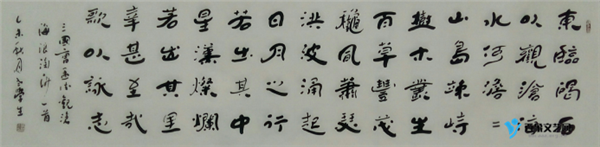 東臨碣石
以觀滄海
水何澹々
山島竦峙
樹木叢生
百草豐茂
龝風蕭瑟
洪波涌起
日月之行
若出其中
星漢燦爛
若出其里
幸甚至哉
歌以詠志
三國曹孟德觀滄
海浪淘沙一首
乙未秋月